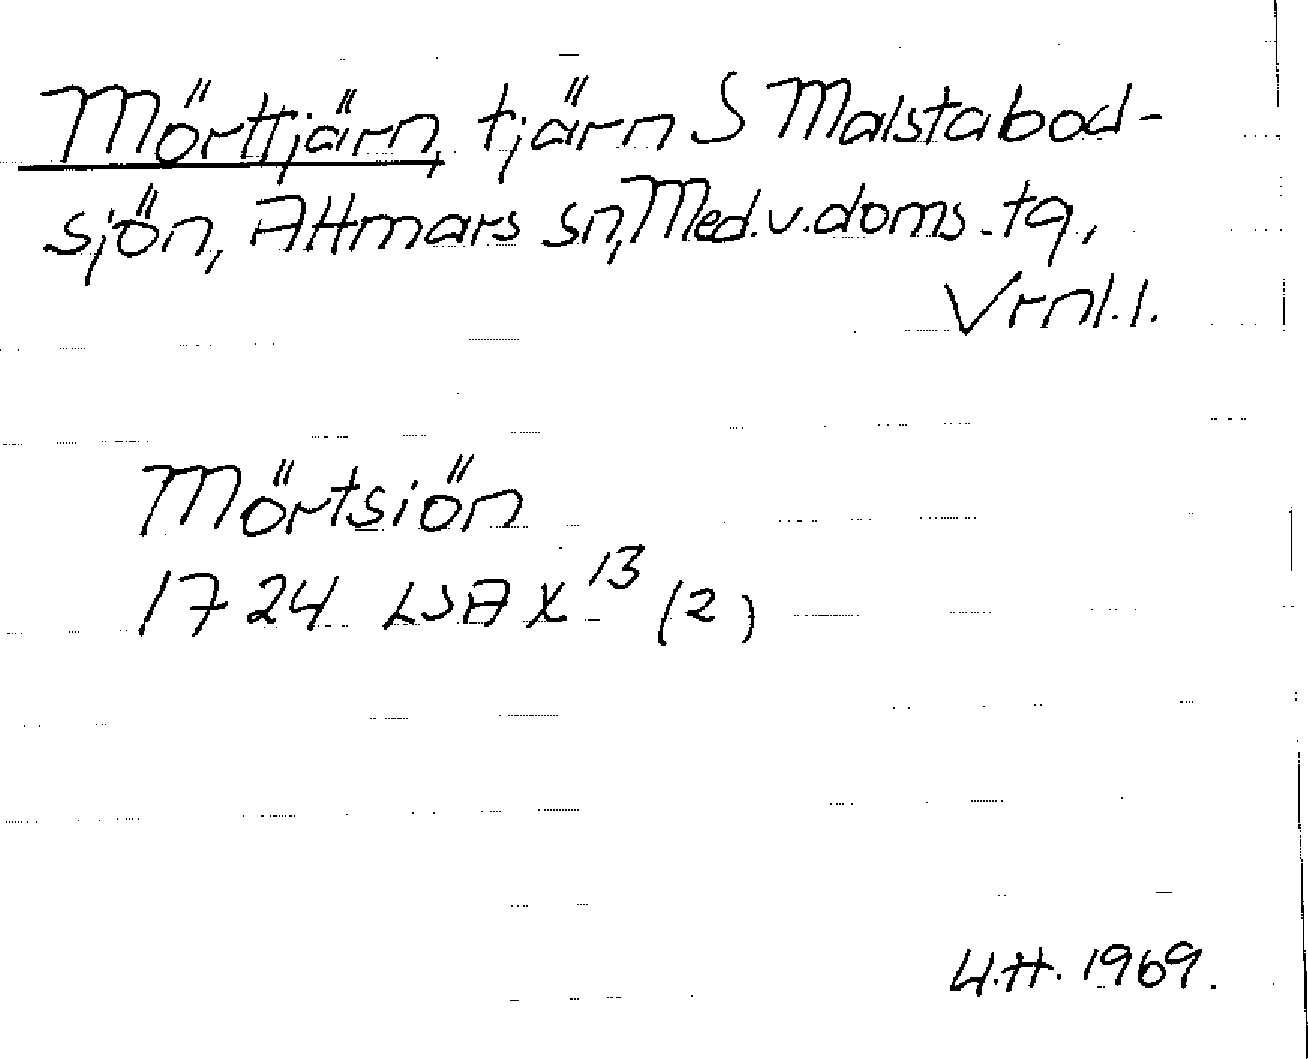 Mörttjärn, tjärn S Malstabod-
sjön, Attmars sn, Med.v.doms.tg.,
Vrnl.l.
Mörtsiön
1724 LSA X¹³ (2)
1969.